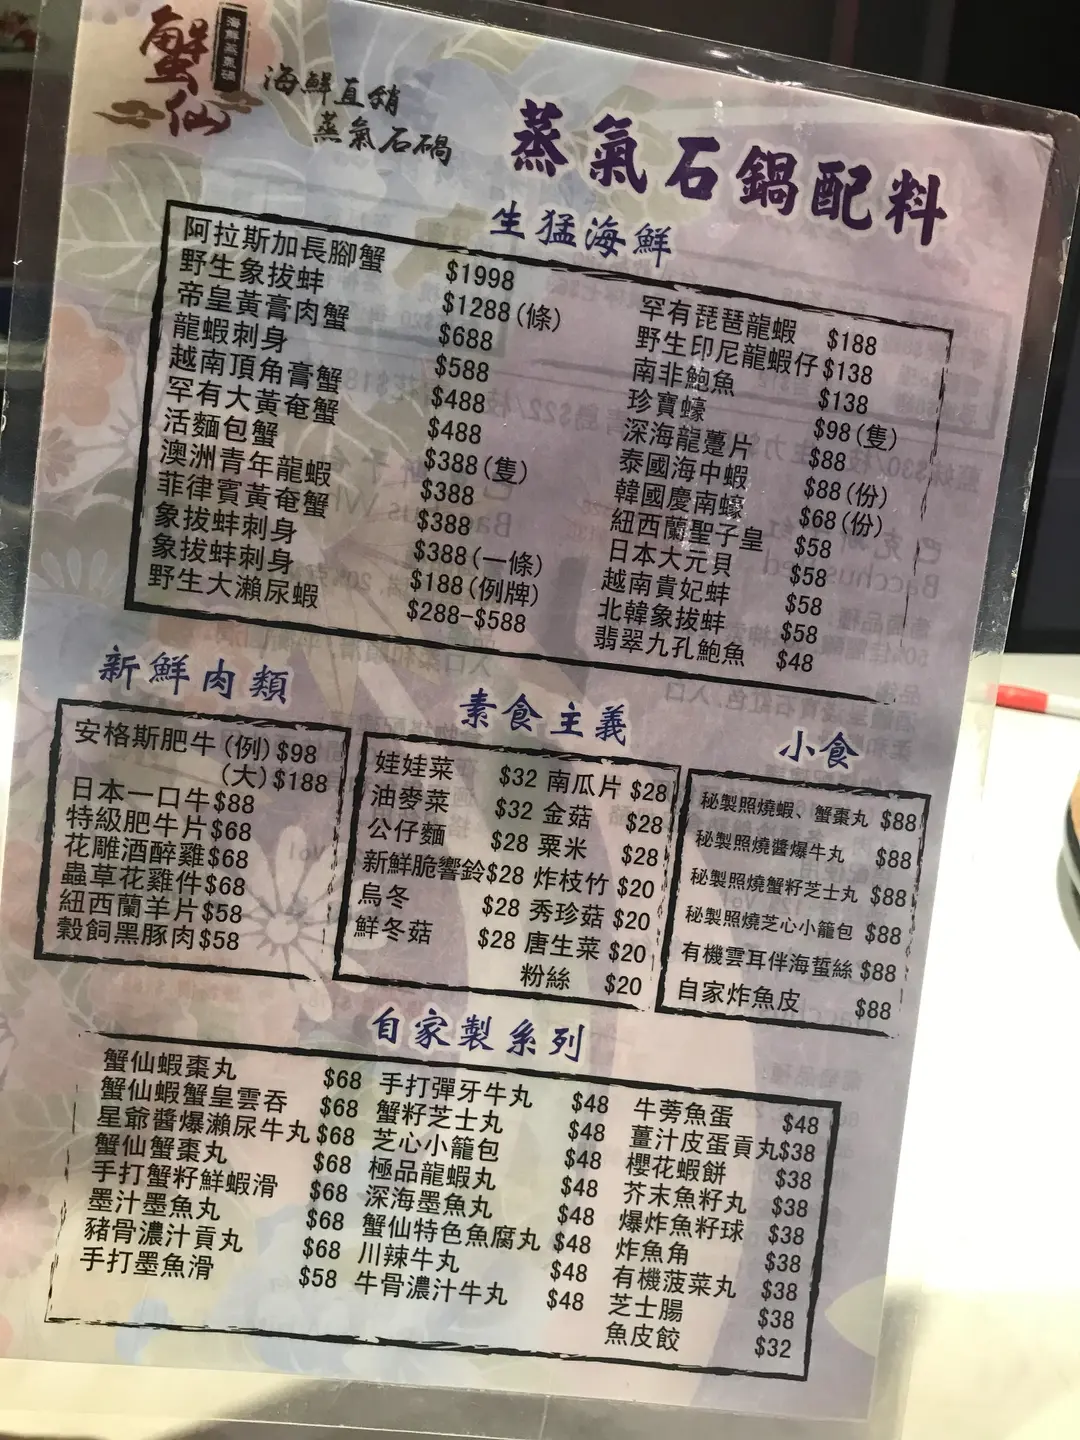 蟹仙
海鮮蒸氣石鍋
海鮮直銷
蒸氣石鍋
蒸氣石鍋配料
生猛海鮮
阿拉斯加長腳蟹 $1998
野生象拔蚌 $1288(條)
帝皇黃膏肉蟹 $688
龍蝦刺身 $588
越南頂角膏蟹 $488
罕有大黃奄蟹 $488
活麵包蟹 $388(隻)
澳洲青年龍蝦 $388
菲律賓黃奄蟹 $388
象拔蚌刺身 $388(一條)
象拔蚌刺身 $188(例牌)
野生大瀨尿蝦 $288-$588
罕有琵琶龍蝦 $188
野生印尼龍蝦仔 $138
南非鮑魚 $138
珍寶蠔 $98(隻)
深海龍躉片 $88
泰國海中蝦 $88(份)
韓國慶南蠔 $68(份)
紐西蘭聖子皇 $58
日本大元貝 $58
越南貴妃蚌 $58
北韓象拔蚌 $58
翡翠九孔鮑魚 $48
新鮮肉類
安格斯肥牛(例)$98
(大)$188
日本一口牛$88
特級肥牛片$68
花雕酒醉雞$68
蟲草花雞件$68
紐西蘭羊片$58
穀飼黑豚肉$58
素食主義
娃娃菜 $32
油麥菜 $32
公仔麵 $28
新鮮脆響鈴$28
烏冬 $28
鮮冬菇 $28
南瓜片 $28
金菇 $28
粟米 $28
炸枝竹 $20
秀珍菇 $20
唐生菜 $20
粉絲 $20
小食
秘製照燒蝦、蟹棗丸 $88
秘製照燒醬爆牛丸 $88
秘製照燒蟹籽芝士丸 $88
秘製照燒芝心小籠包 $88
有機雲耳伴海蜇絲 $88
自家炸魚皮 $88
自家製系列
蟹仙蝦棗丸 $68
蟹仙蝦蟹皇雲吞 $68
星爺醬爆瀨尿牛丸 $68
蟹仙蟹棗丸 $68
手打蟹籽鮮蝦滑 $68
墨汁墨魚丸 $68
豬骨濃汁貢丸 $68
手打墨魚滑 $58
手打彈牙牛丸 $48
蟹籽芝士丸 $48
芝心小籠包 $48
極品龍蝦丸 $48
深海墨魚丸 $48
蟹仙特色魚腐丸 $48
川辣牛丸 $48
牛骨濃汁牛丸 $48
牛蒡魚蛋 $48
薑汁皮蛋貢丸$38
櫻花蝦餅 $38
芥末魚籽丸 $38
爆炸魚籽球 $38
炸魚角 $38
有機菠菜丸 $38
芝士腸 $38
魚皮餃 $32